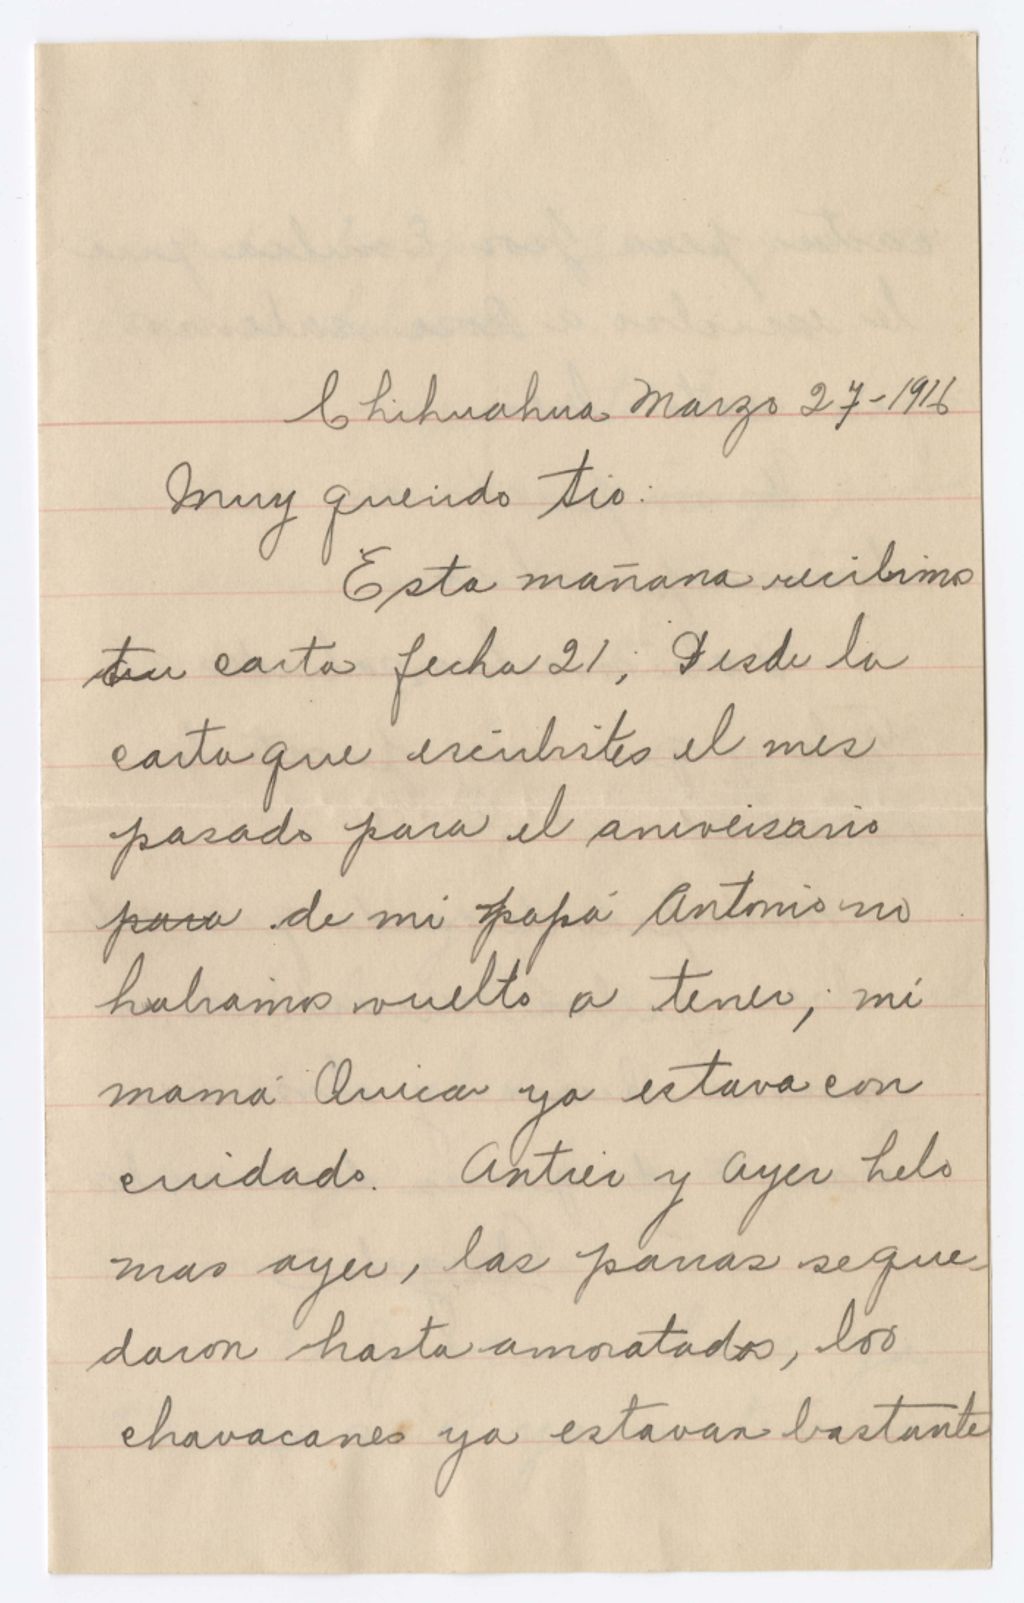 Chihuahua Marzo 27-1916
Muy querido tio:
Esta mañana recibimos
tu carta fecha 21; Desde la
carta que escribistes el mes
pasado para el aniversario
para de mi papá Antonio no
habiamos vuelto a tener; mi
mamá Quica ya estava con
cuidado. Antier y Ayer helo
mas ayer, las parras se que-
daron hasta amoratados, los
chavacanes ya estavan bastante